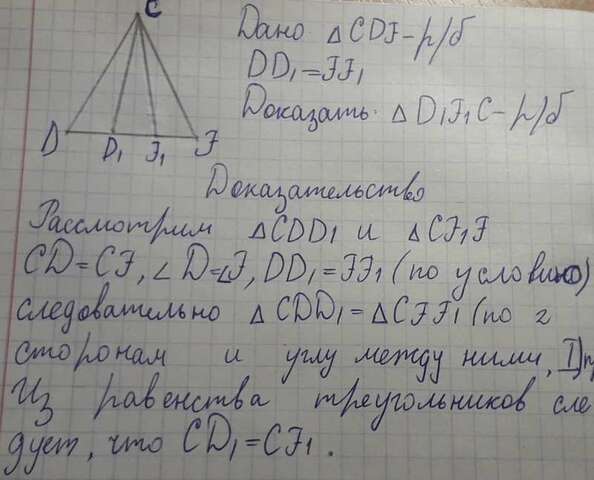 C
Дано △CDF-р/б
DD₁=FF₁
Доказать: △D₁F₁C-р/б
D D₁ F₁ F
Доказательство
Рассмотрим △CDD₁ и △CF₁F
CD=CF, ∠D=∠F, DD₁=FF₁ (по условию)
следовательно △CDD₁=△CFF₁ (по 2
сторонам и углу между ними, I)пр
Из равенства треугольников сле
дует, что CD₁=CF₁.